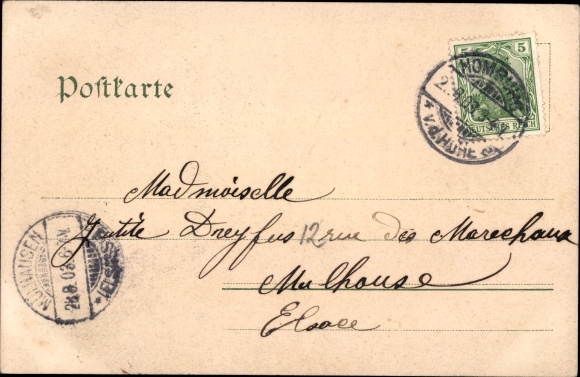 Postkarte
5 5
HOMBURG
DEUTSCHES REICH
* V.D. HÖHE
Madmoiselle
Dreyfus 12 rue des Marechaux
Mulhouse
Elsace
MÜLHAUSEN